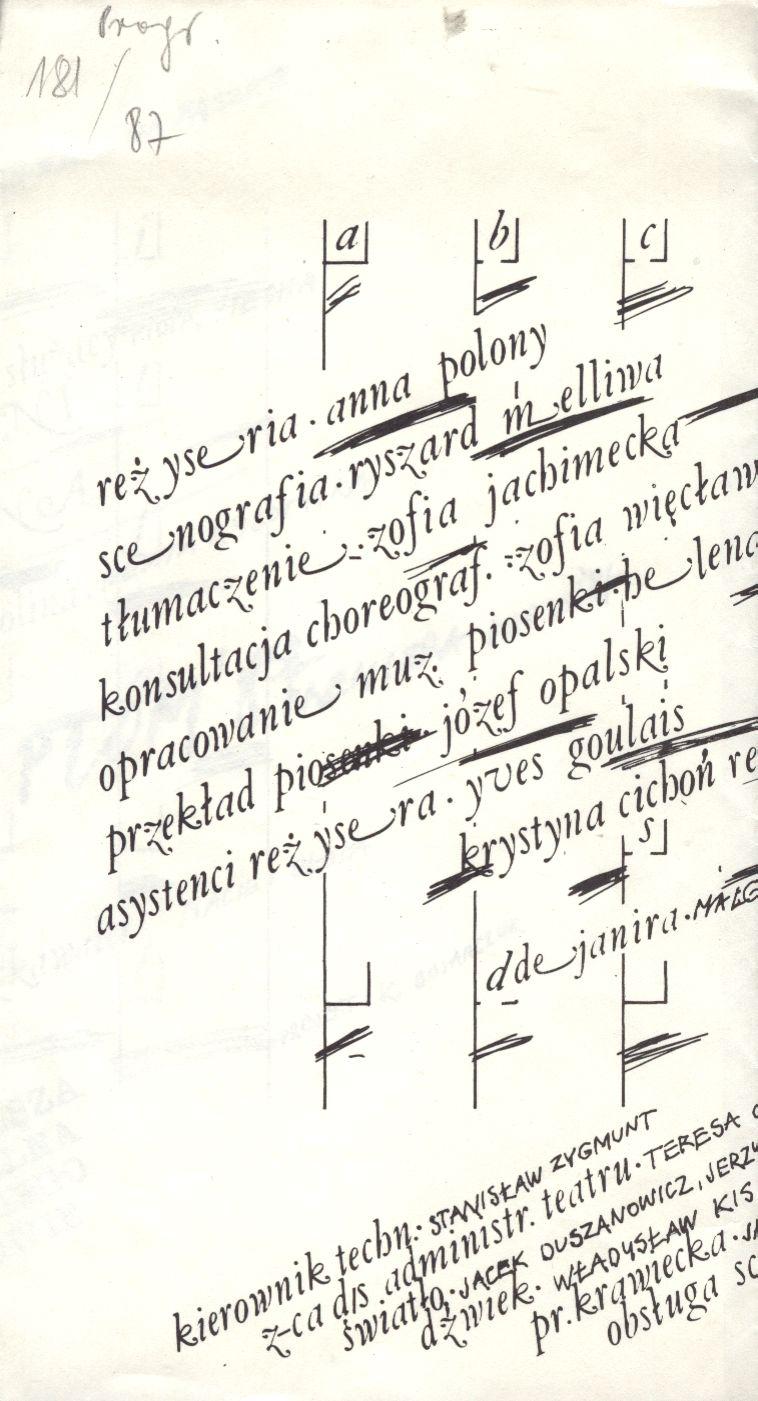 Progr.
181/87
a b c
reżyseria · anna polony
scenografia · ryszard melliwa
tłumaczenie · zofia jachimecka
konsultacja choreograf. · zofia więcław
opracowanie muz. piosenki · helena
przekład piosenki · józef opalski
asystenci reżysera · yves goulais
krystyna cichoń re
s
d de janira · MAŁG
kierownik techn. · STANISŁAW ZYGMUNT
z-ca d/s administr. teatru · TERESA
światło · JACEK DUSZANOWICZ, JERZY
dźwięk · WŁADYSŁAW KIS
pr. krawiecka · JA
obsługa sc